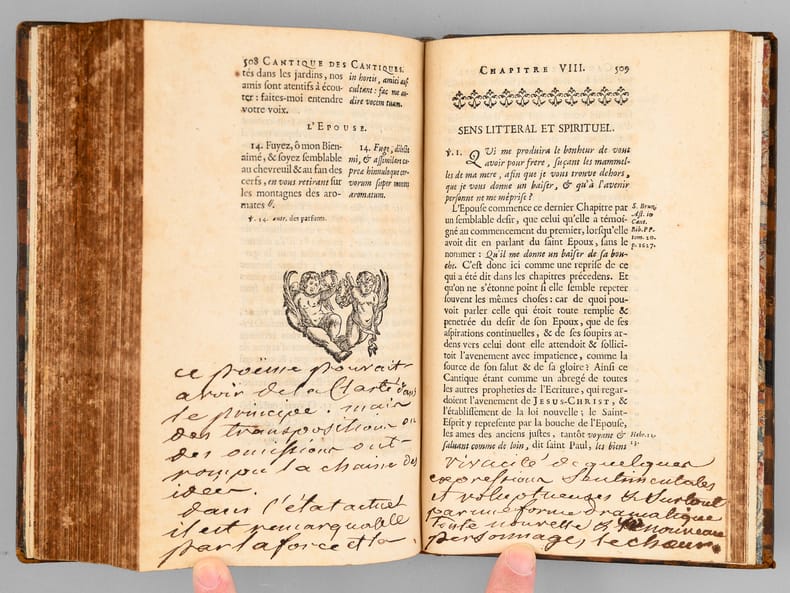 508 CANTIQUE DES CANTIQUES.
tés dans les jardins, nos
amis sont atentifs à écou-
ter : faites-moi entendre
votre voix.
in hortis, amici aus-
cultant : fac me au-
dire vocem tuam.
L'EPOUSE.
14. Fuyez, ô mon Bien-
aimé, & soyez semblable
au chevreuil & au fan des
cerfs, en vous retirant sur
les montagnes des aro-
mates ¶.
14. Fuge, dilecte
mi, & assimilare ca-
preæ hinnuloque cer-
vorum super montes
aromatum.
℣. 14. autr. des parfums.
ce poëme pourait
avoir de la Clarté dans
le principe. mais
des transpositions ou
des omissions ont
rompu la chaine des
idées.
dans l'état actuel
il est remarquable
par la force et la
CHAPITRE VIII. 509
SENS LITTERAL ET SPIRITUEL.
℣. 1. QUi me produira le bonheur de vous
avoir pour frere, suçant les mammel-
les de ma mere, afin que je vous trouve dehors,
que je vous donne un baiser, & qu'à l'avenir
personne ne me méprise ?
L'Epouse commence ce dernier Chapitre par
un semblable desir, que celui qu'elle a témoi-
gné au commencement du premier, lorsqu'elle
avoit dit en parlant du saint Epoux, sans le
nommer : Qu'il me donne un baiser de sa bou-
che. C'est donc ici comme une reprise de ce
qui a été dit dans les chapitres précedens. Et
qu'on ne s'étonne point si elle semble repeter
souvent les mêmes choses : car de quoi pou-
voit parler celle qui étoit toute remplie &
penetrée du desir de son Epoux, que de ses
aspirations continuelles, & de ses soupirs ar-
dens vers celui dont elle attendoit & sollici-
toit l'avenement avec impatience, comme la
source de son salut & de sa gloire ? Ainsi ce
Cantique étant comme un abregé de toutes
les autres propheties de l'Ecriture, qui regar-
doient l'avenement de JESUS-CHRIST, &
l'établissement de la loi nouvelle ; le Saint-
Esprit y represente par la bouche de l'Epouse,
les ames des anciens justes, tantôt voyant &
saluant comme de loin, dit saint Paul, les biens
S. Brun.
Ast. in
Cant.
Bib. PP.
tom. 20.
p. 1627.
Hebr. 11.
13.
vivacité de quelques
expressions Sentimentales
et voluptueuses & Surtout
par une forme dramatique
toute nouvelle & le nouveau
personnage, le chœur.